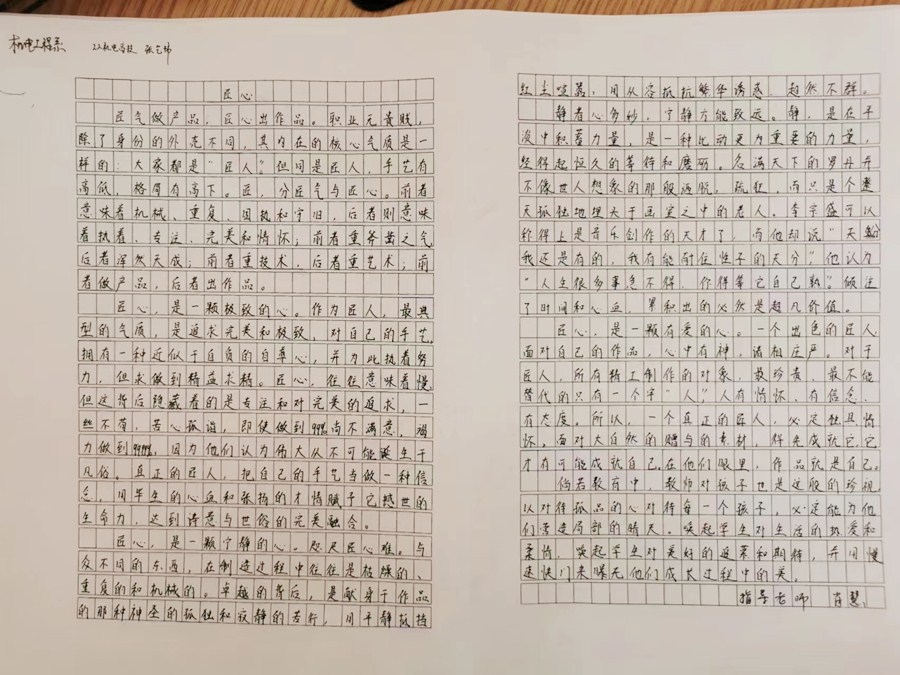 机电工程系 22机电高技
匠心
匠气做产品，匠心出作品。职业无贵贱，
除了身份的外壳不同，其内在的核心气质是一
样的：大家都是“匠人”但同是匠人，手艺有
高低，格局有高下。匠，分匠气与匠心。前者
意味着机械、重复、固执和守旧，后者则意味
着执着、专注、完美和情怀；前者重斧凿之气
后者浑然天成；前者重技术，后者重艺术；前
者做产品，后者出作品。
匠心，是一颗极致的心。作为匠人，最典
型的气质，是追求完美和极致，对自己的手艺，
拥有一种近似于自负的自尊心，并为此执着努
力，但求做到精益求精。匠心，往往意味着慢
但这背后隐藏着的是专注和对完美的追求，一
丝不苟，苦心孤诣，即使做到99%尚不满意，竭
力做到99.99%，因为他们认为伟大从不可能诞生于
凡俗。真正的匠人，把自己的手艺当做一种信
念，用毕生的心血和张扬的才情赋予它撼世的
生命力，达到诗意与世俗的完美融合。
匠心，是一颗宁静的心。咫尺匠心难。与
众不同的东西，在制造过程中往往是枯燥的、
重复的和机械的。卓越的背后，是献身于作品
的那种神圣的孤独和寂静的苦行，用平静抵挡
红尘喧嚣，用从容抵抗繁华诱惑，超然不群。
静者心多妙，宁静方能致远。静，是在平
淡中积蓄力量，是一种比动更为重要的力量，
经得起恒久的等待和磨砺。名满天下的罗丹并
不像世人想象的那般洒脱、疏狂，而只是个整
天孤独地埋头于画室之中的老人。李宗盛可以
称得上是音乐创作的天才了，而他却说“天分
我还是有的，我有能耐住性子的天分”他认为
“人生很多事急不得，你得等它自己熟”倾注
了时间和心血，累积出的必然是超凡价值。
匠心，是一颗有爱的心。一个出色的匠人
面对自己的作品，心中有神，诸相庄严。对于
匠人，所有精工制作的对象，最珍贵、最不能
替代的只有一个字“人”！人有情怀、有信念、
有态度。所以，一个真正的匠人，必定独具情
怀。面对大自然的赠与的素材，得先成就它，它
才有可能成就自己。在他们眼里，作品就是自己。
倘若教育中，教师对孩子也是这般的珍视，
以对待孤品的心对待每一个孩子，必定能为他
们营造局部的晴天。唤起学生对生活的热爱和
柔情，唤起学生对美好的追慕和期待，并用慢
速快门来曝光他们成长过程中的美。
指导老师 肖慧